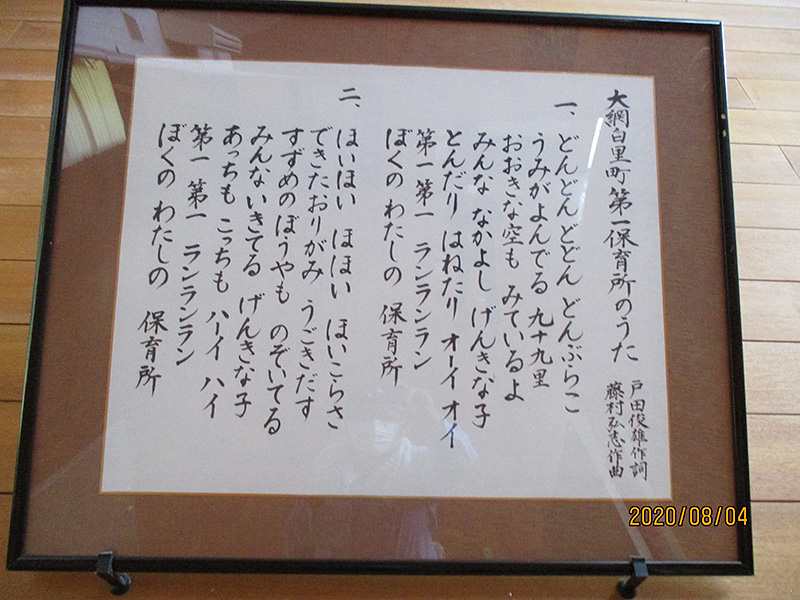 大網白里町第一保育所のうた
戸田俊雄作詞
藤村弘志作曲
一、どんどん どどん どんぶらこ
うみがよんでる 九十九里
おおきな空も みているよ
みんな なかよし げんきな子
とんだり はねたり オーイ オイ
第一 第一 ランランラン
ぼくの わたしの 保育所
二、ほいほい ほほい ほいこらさ
できたおりがみ うごきだす
すずめのぼうやも のぞいてる
みんないきてる げんきな子
あっちも こっちも ハーイ ハイ
第一 第一 ランランラン
ぼくの わたしの 保育所
2020/08/04